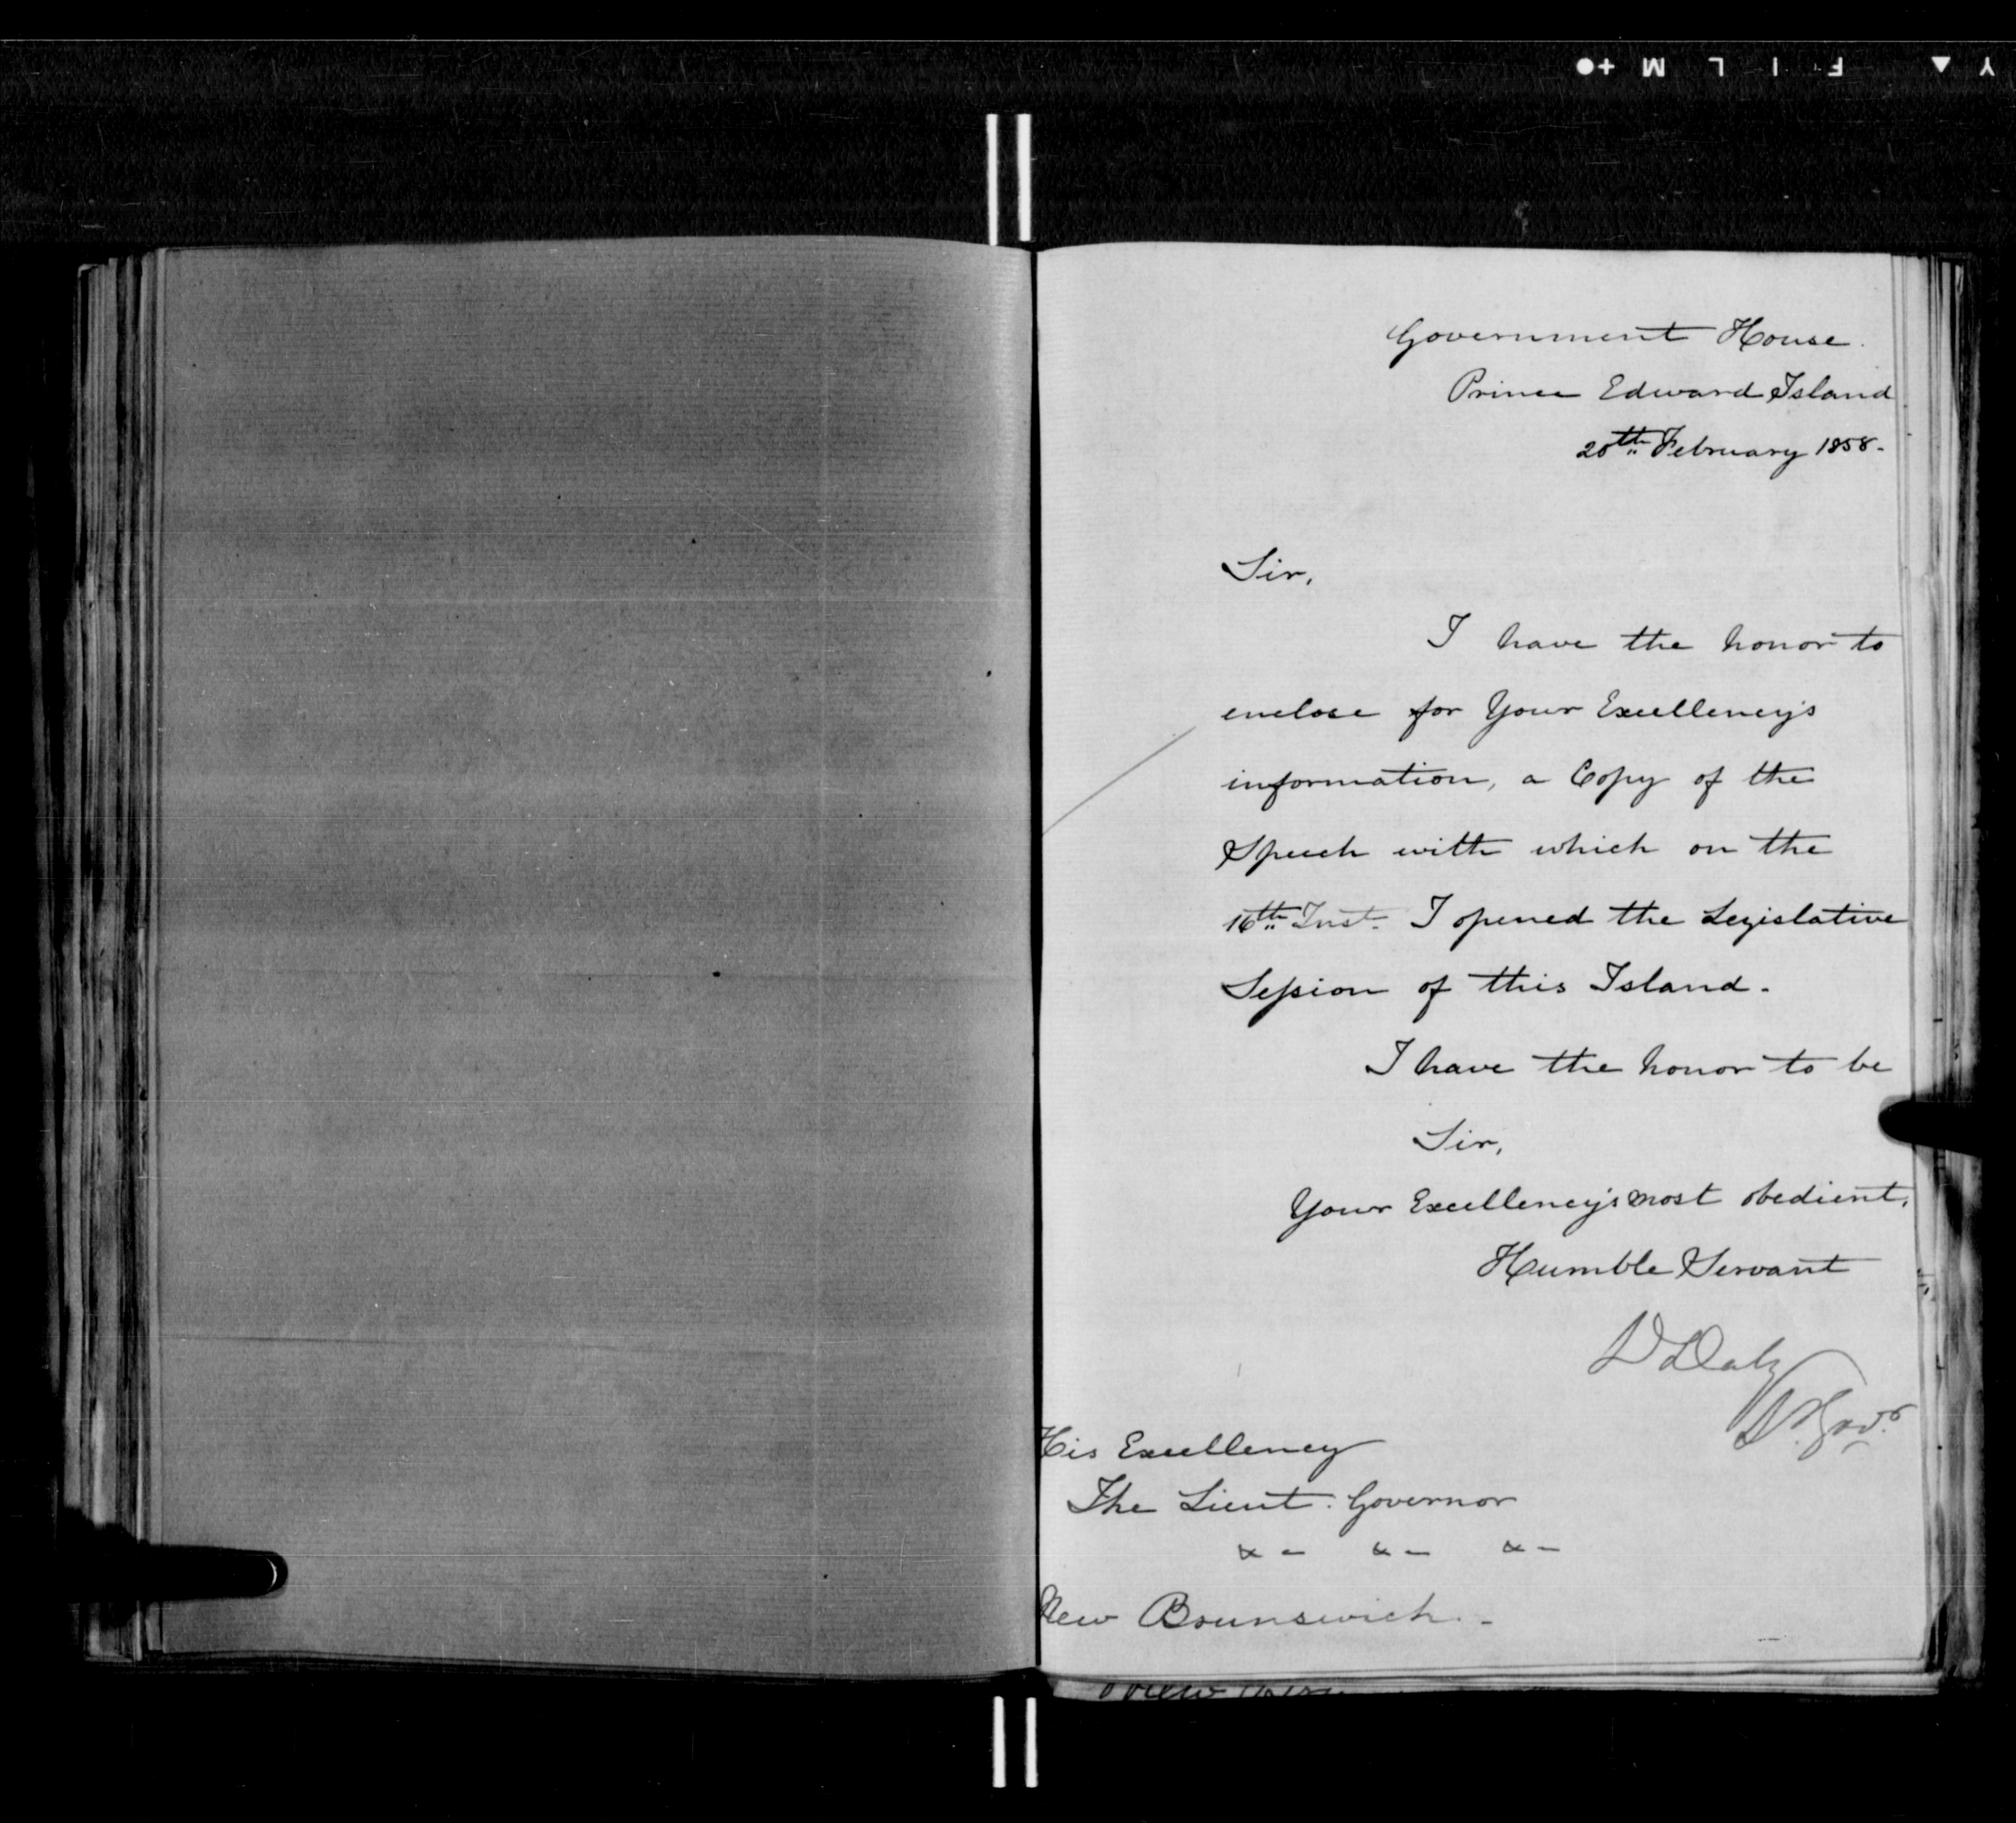 Government House.
Prince Edward Island
20th February 1858.
Sir,
I have the honor to
enclose for Your Excellency's
information, a Copy of the
Speech with which on the
16th Inst. I opened the Legislative
Session of this Island.
I have the honor to be
Sir,
Your Excellency's most obedient,
Humble Servant
D Daly
Lt. Govr
His Excellency
The Lieut. Governor
&- &- &-
New Brunswick.-